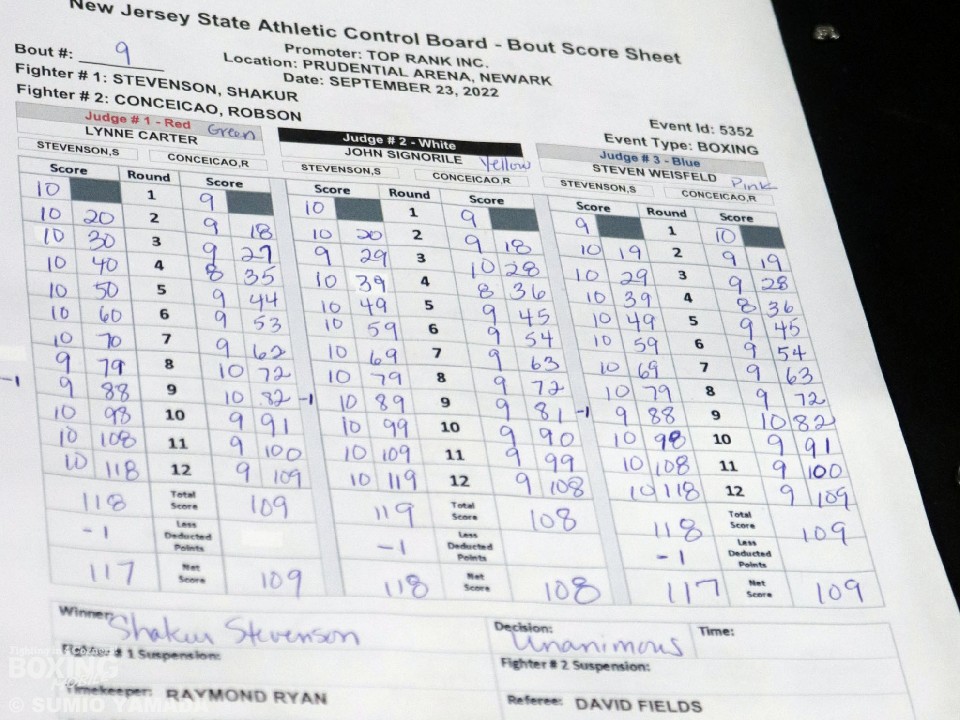 New Jersey State Athletic Control Board - Bout Score Sheet
Bout #: 9
Promoter: TOP RANK INC.
Location: PRUDENTIAL ARENA, NEWARK
Date: SEPTEMBER 23, 2022
Fighter # 1: STEVENSON, SHAKUR
Fighter # 2: CONCEICAO, ROBSON
Event Id: 5352
Event Type: BOXING
Judge # 1 - Red Green
LYNNE CARTER
STEVENSON,S CONCEICAO,R
Score Round Score
10 1 9
10 20 2 9 18
10 30 3 9 27
10 40 4 8 35
10 50 5 9 44
10 60 6 9 53
10 70 7 9 62
9 79 8 10 72
-1 9 88 9 10 82
10 98 10 9 91
10 108 11 9 100
10 118 12 9 109
118 Total Score 109
-1 Less Deducted Points
117 Net Score 109
Judge # 2 - White
JOHN SIGNORILE Yellow
STEVENSON,S CONCEICAO,R
Score Round Score
10 1 9
10 20 2 9 18
9 29 3 10 28
10 39 4 8 36
10 49 5 9 45
10 59 6 9 54
10 69 7 9 63
10 79 8 9 72
-1 10 89 9 9 81
10 99 10 9 90
10 109 11 9 99
10 119 12 9 108
119 Total Score 108
-1 Less Deducted Points
118 Net Score 108
Judge # 3 - Blue
STEVEN WEISFELD Pink
STEVENSON,S CONCEICAO,R
Score Round Score
9 1 10
10 19 2 9 19
10 29 3 9 28
10 39 4 8 36
10 49 5 9 45
10 59 6 9 54
10 69 7 9 63
10 79 8 9 72
-1 9 88 9 10 82
10 98 10 9 91
10 108 11 9 100
10 118 12 9 109
118 Total Score 109
-1 Less Deducted Points
117 Net Score 109
Winner: Shakur Stevenson
Decision: Unanimous
Time:
# 1 Suspension:
Fighter # 2 Suspension:
Timekeeper: RAYMOND RYAN
Referee: DAVID FIELDS
BOXING
© SUMIO YAMADA